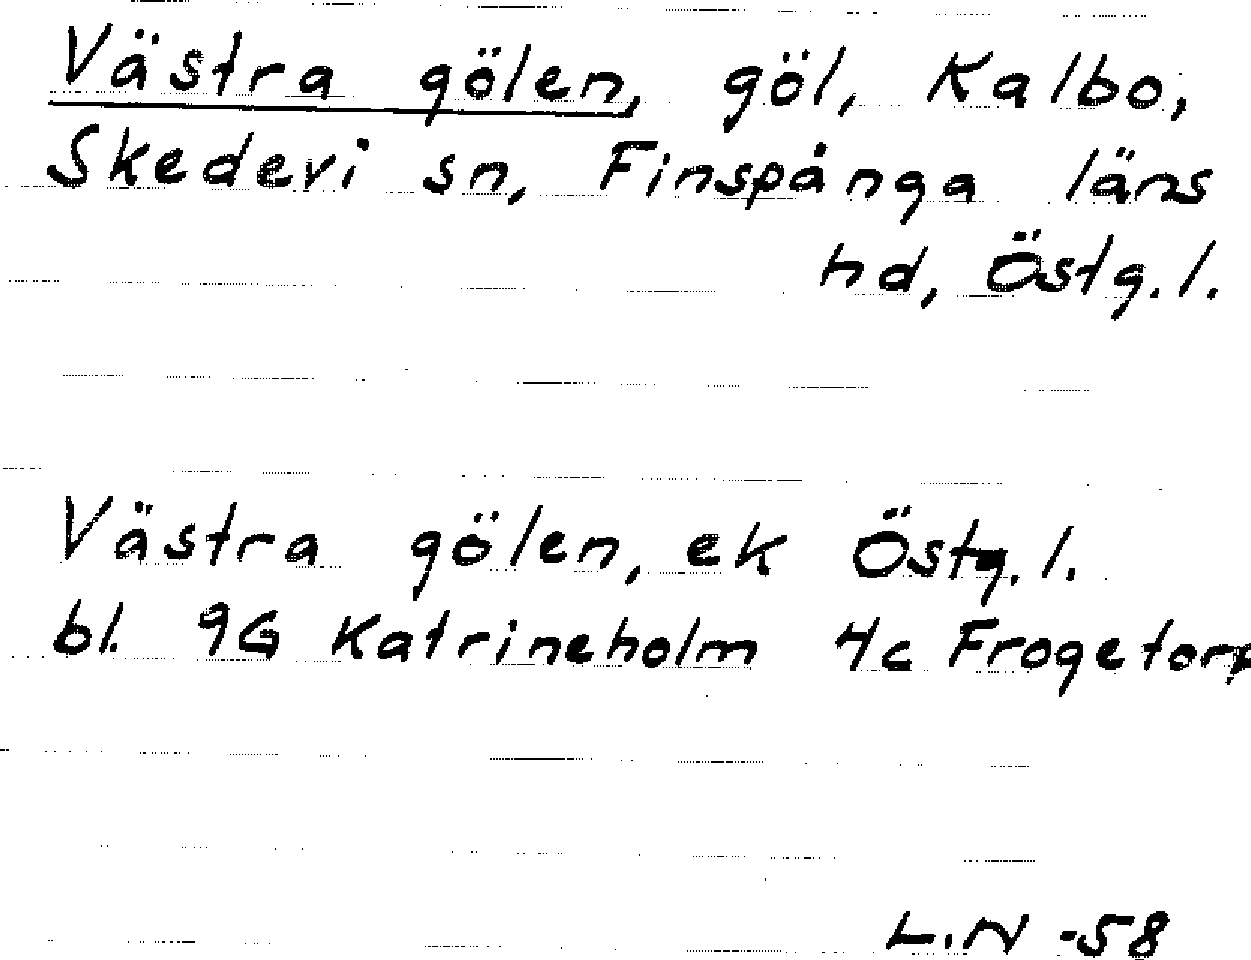 Västra gölen, göl, Kalbo,
Skedevi sn, Finspånga läns
hd, Östg.l.
Västra gölen, ek Östg.l.
bl. 9G Katrineholm 4c Frogetorp
L.N -58